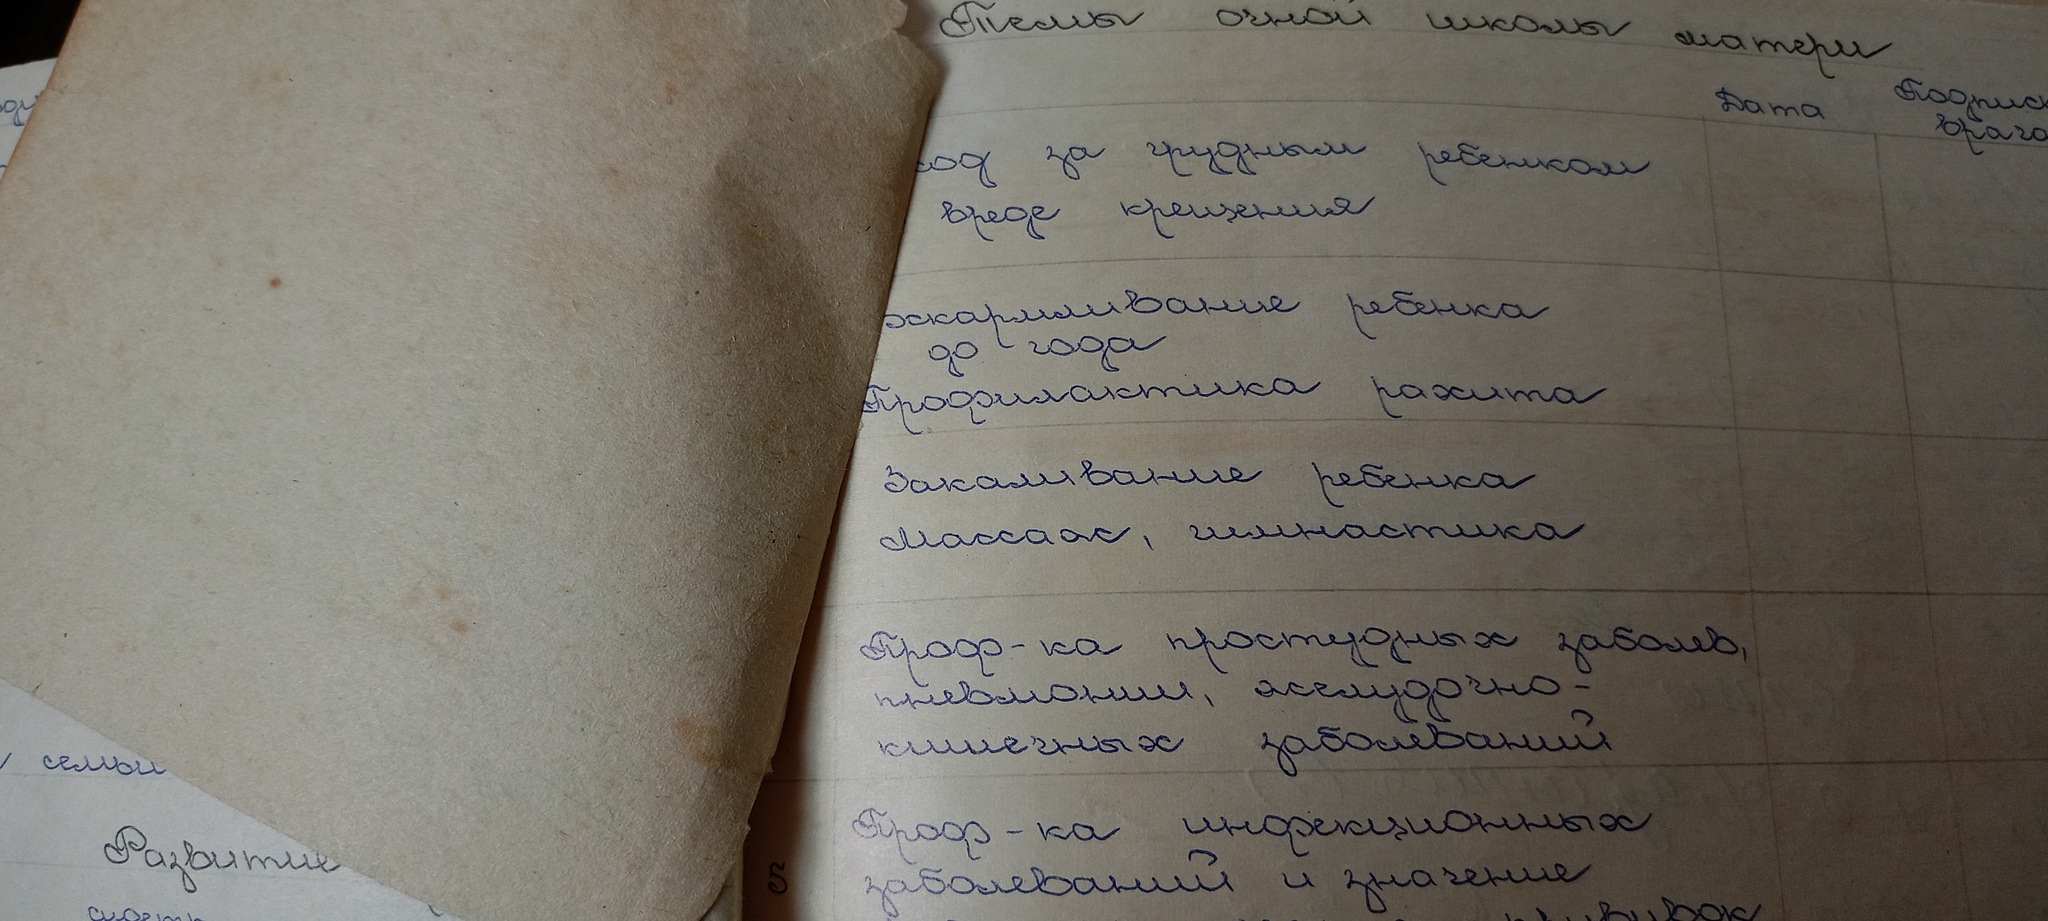 Темы очной школы матери
Дата
Подпись
врача
ход за грудным ребенком
вреде крещения
скармливание ребенка
до года
Профилактика рахита
Закаливание ребенка
Массаж, гимнастика
Проф-ка простудных заболев,
пневмонии, желудочно-
кишечных заболеваний
Проф-ка инфекционных
5
заболеваний и значение
прививок
семьи
Развитие